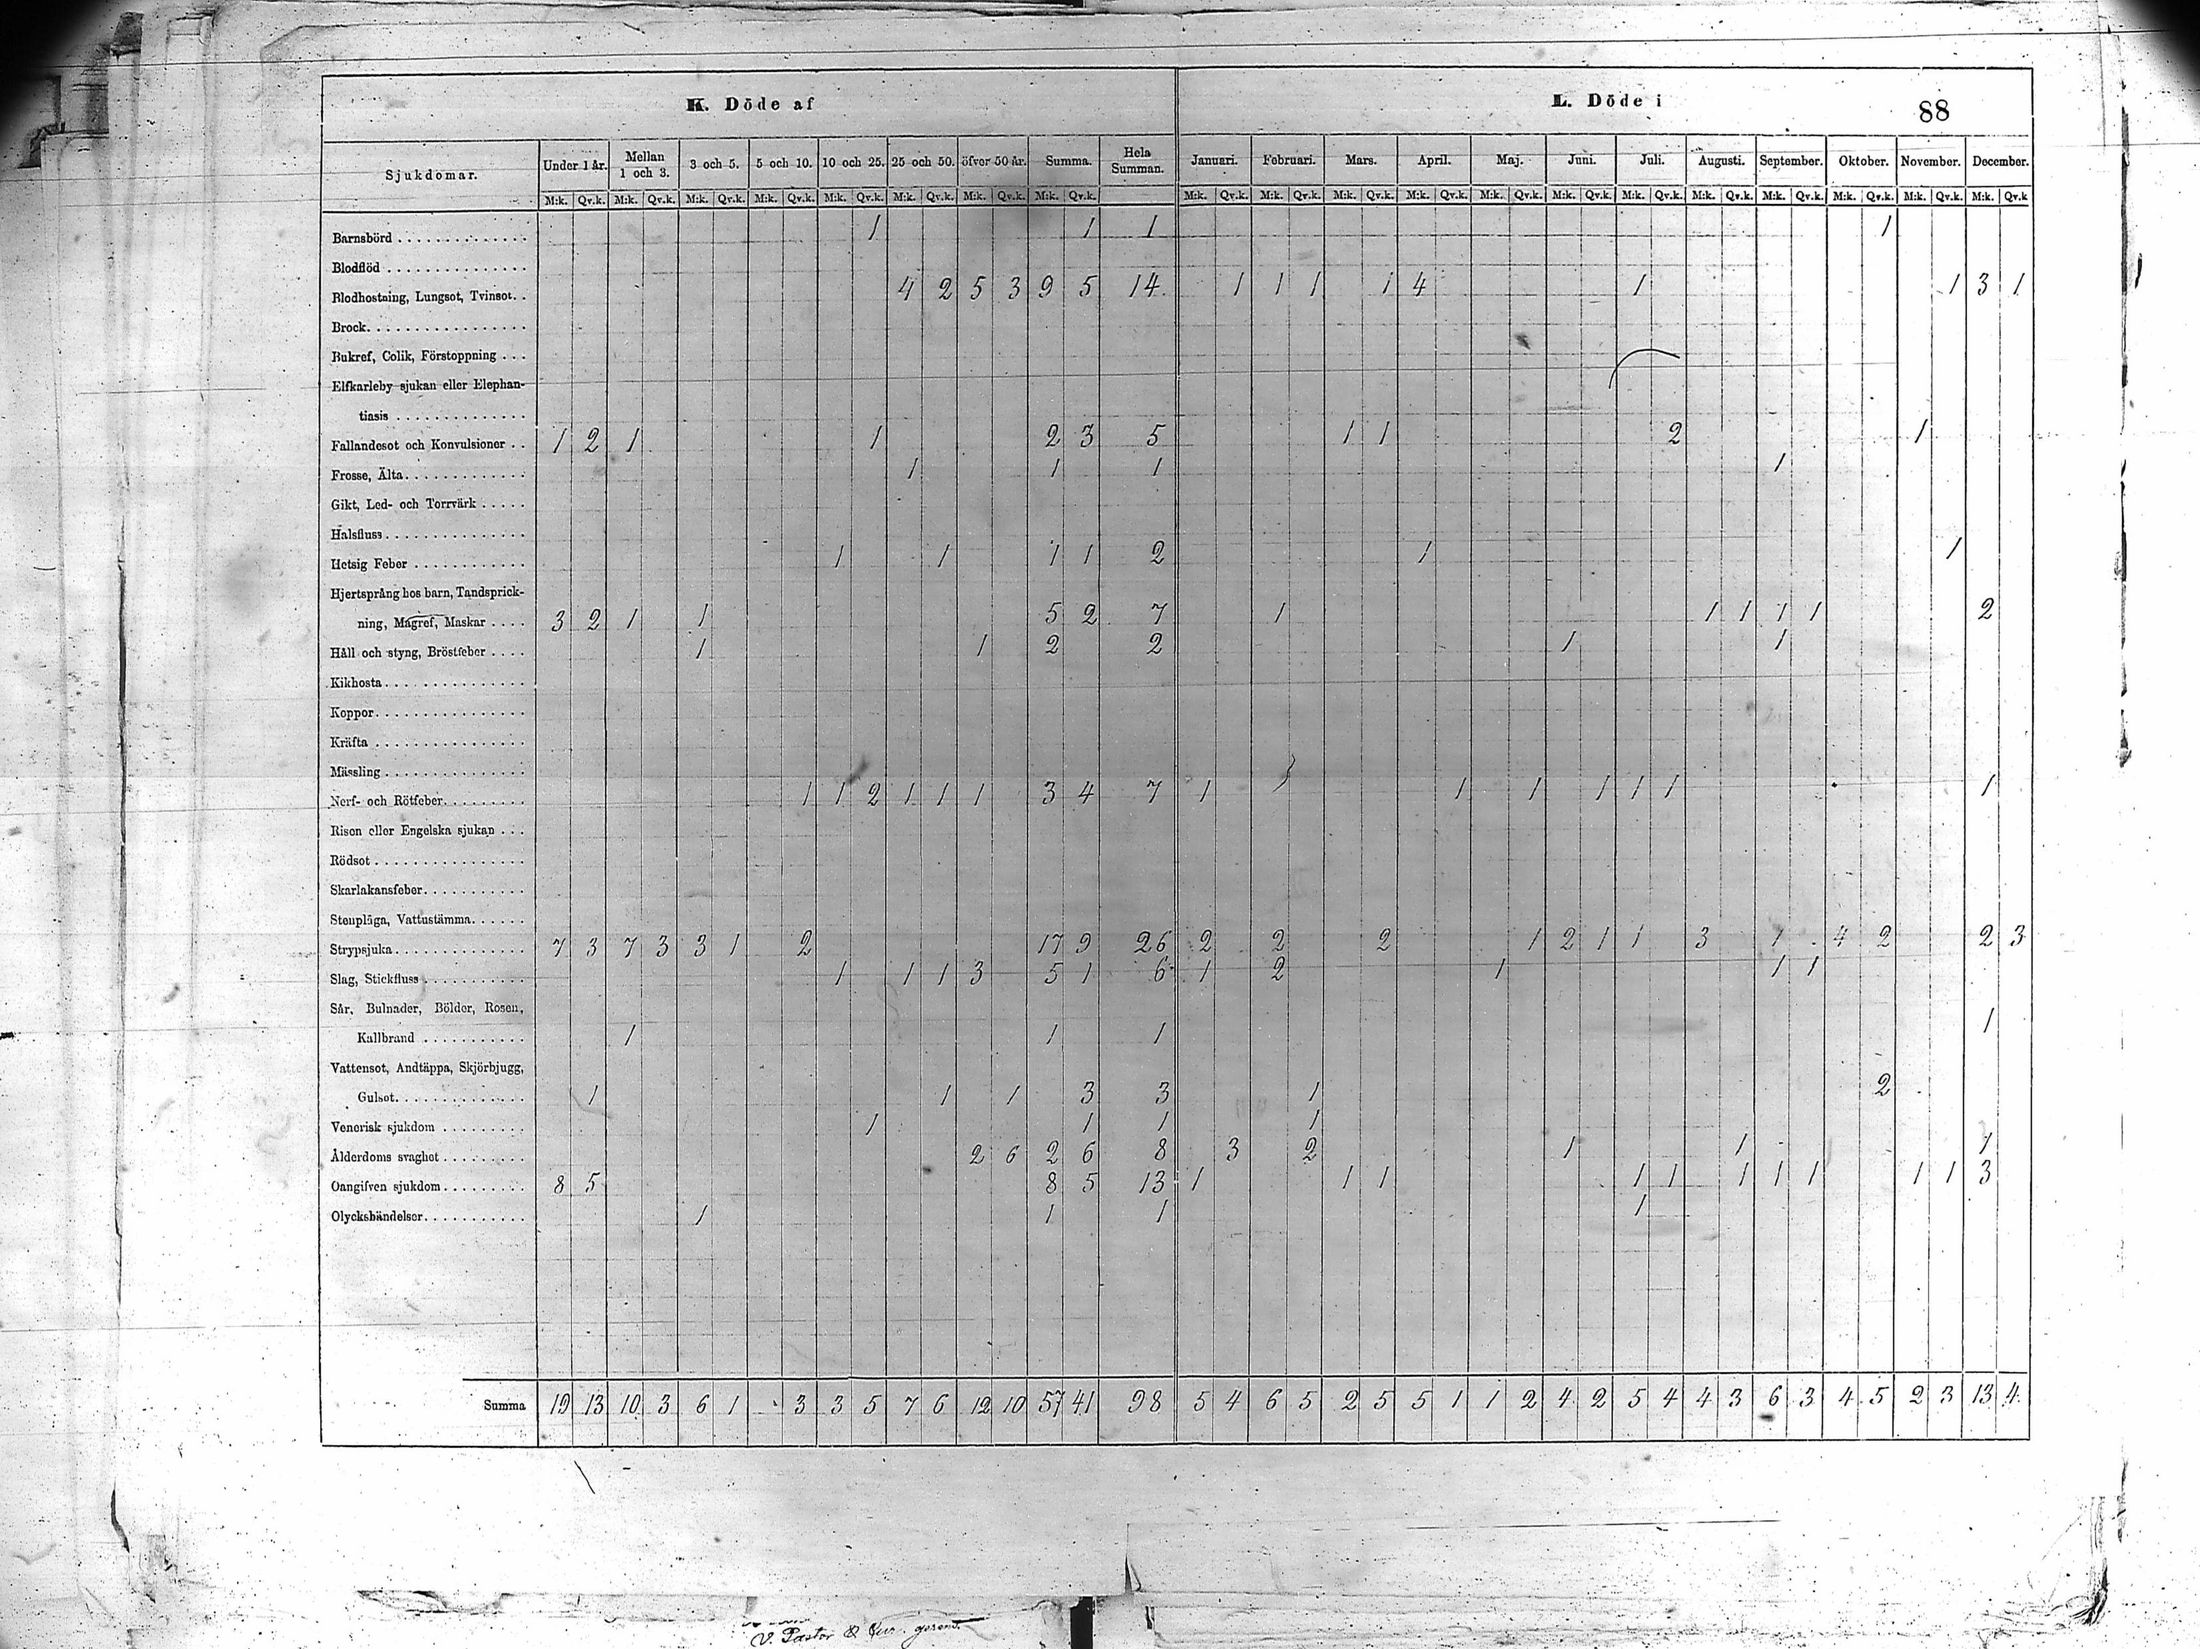 K. Döde af
L. Döde i
88
Sjukdomar. Under 1 år. Mellan 1 och 3. 3 och 5. 5 och 10. 10 och 25. 25 och 50. öfver 50 år. Summa. Hela Summan. Januari. Februari. Mars. April. Maj. Juni. Juli. Augusti. September. Oktober. November. December.
M:k. Qv.k. M:k. Qv.k. M:k. Qv.k. M:k. Qv.k. M:k. Qv.k. M:k. Qv.k. M:k. Qv.k. M:k. Qv.k. M:k. Qv.k. M:k. Qv.k. M:k. Qv.k. M:k. Qv.k. M:k. Qv.k. M:k. Qv.k. M:k. Qv.k. M:k. Qv.k. M:k. Qv.k. M:k. Qv.k. M:k. Qv.k. M:k. Qv.k
Barnsbörd 1 1 1 1
Blodflöd
Blodhostning, Lungsot, Tvinsot. 4 2 5 3 9 5 14 1 1 1 1 4 1 1 3 1
Brock
Bukref, Colik, Förstoppning
Elfkarleby sjukan eller Elephan-
tiasis
Fallandesot och Konvulsioner 1 2 1 1 2 3 5 1 1 2 1
Frosse, Älta 1 1 1 1
Gikt, Led- och Torrvärk
Halsfluss
Hetsig Feber 1 1 1 1 2 1 1
Hjertsprång hos barn, Tandsprick-
ning, Magref, Maskar 3 2 1 1 5 2 7 1 1 1 1 1 2
Håll och styng, Bröstfeber 1 1 2 2 1 1
Kikhosta
Koppor
Kräfta
Mässling
Nerf- och Rötfeber 1 1 2 1 1 1 3 4 7 1 1 1 1 1 1 1
Risen eller Engelska sjukan
Rödsot
Skarlakansfeber
Stenplåga, Vattustämma
Strypsjuka 7 3 7 3 3 1 2 17 9 26 2 2 2 1 2 1 1 3 1 4 2 2 3
Slag, Stickfluss 1 1 1 3 5 1 6 1 2 1 1 1
Sår, Bulnader, Bölder, Rosen,
Kallbrand 1 1 1 1
Vattensot, Andtäppa, Skjörbjugg,
Gulsot 1 1 1 3 3 1 2
Venerisk sjukdom 1 1 1 1
Ålderdoms svaghet 2 6 2 6 8 3 2 1 1 1
Oangifven sjukdom 8 5 8 5 13 1 1 1 1 1 1 1 1 1 1 3
Olyckshändelser 1 1 1 1
Summa 19 13 10 3 6 1 3 3 5 7 6 12 10 57 41 98 5 4 6 5 2 5 5 1 1 2 4 2 5 4 4 3 6 3 4 5 2 3 13 4
V. Pastor &